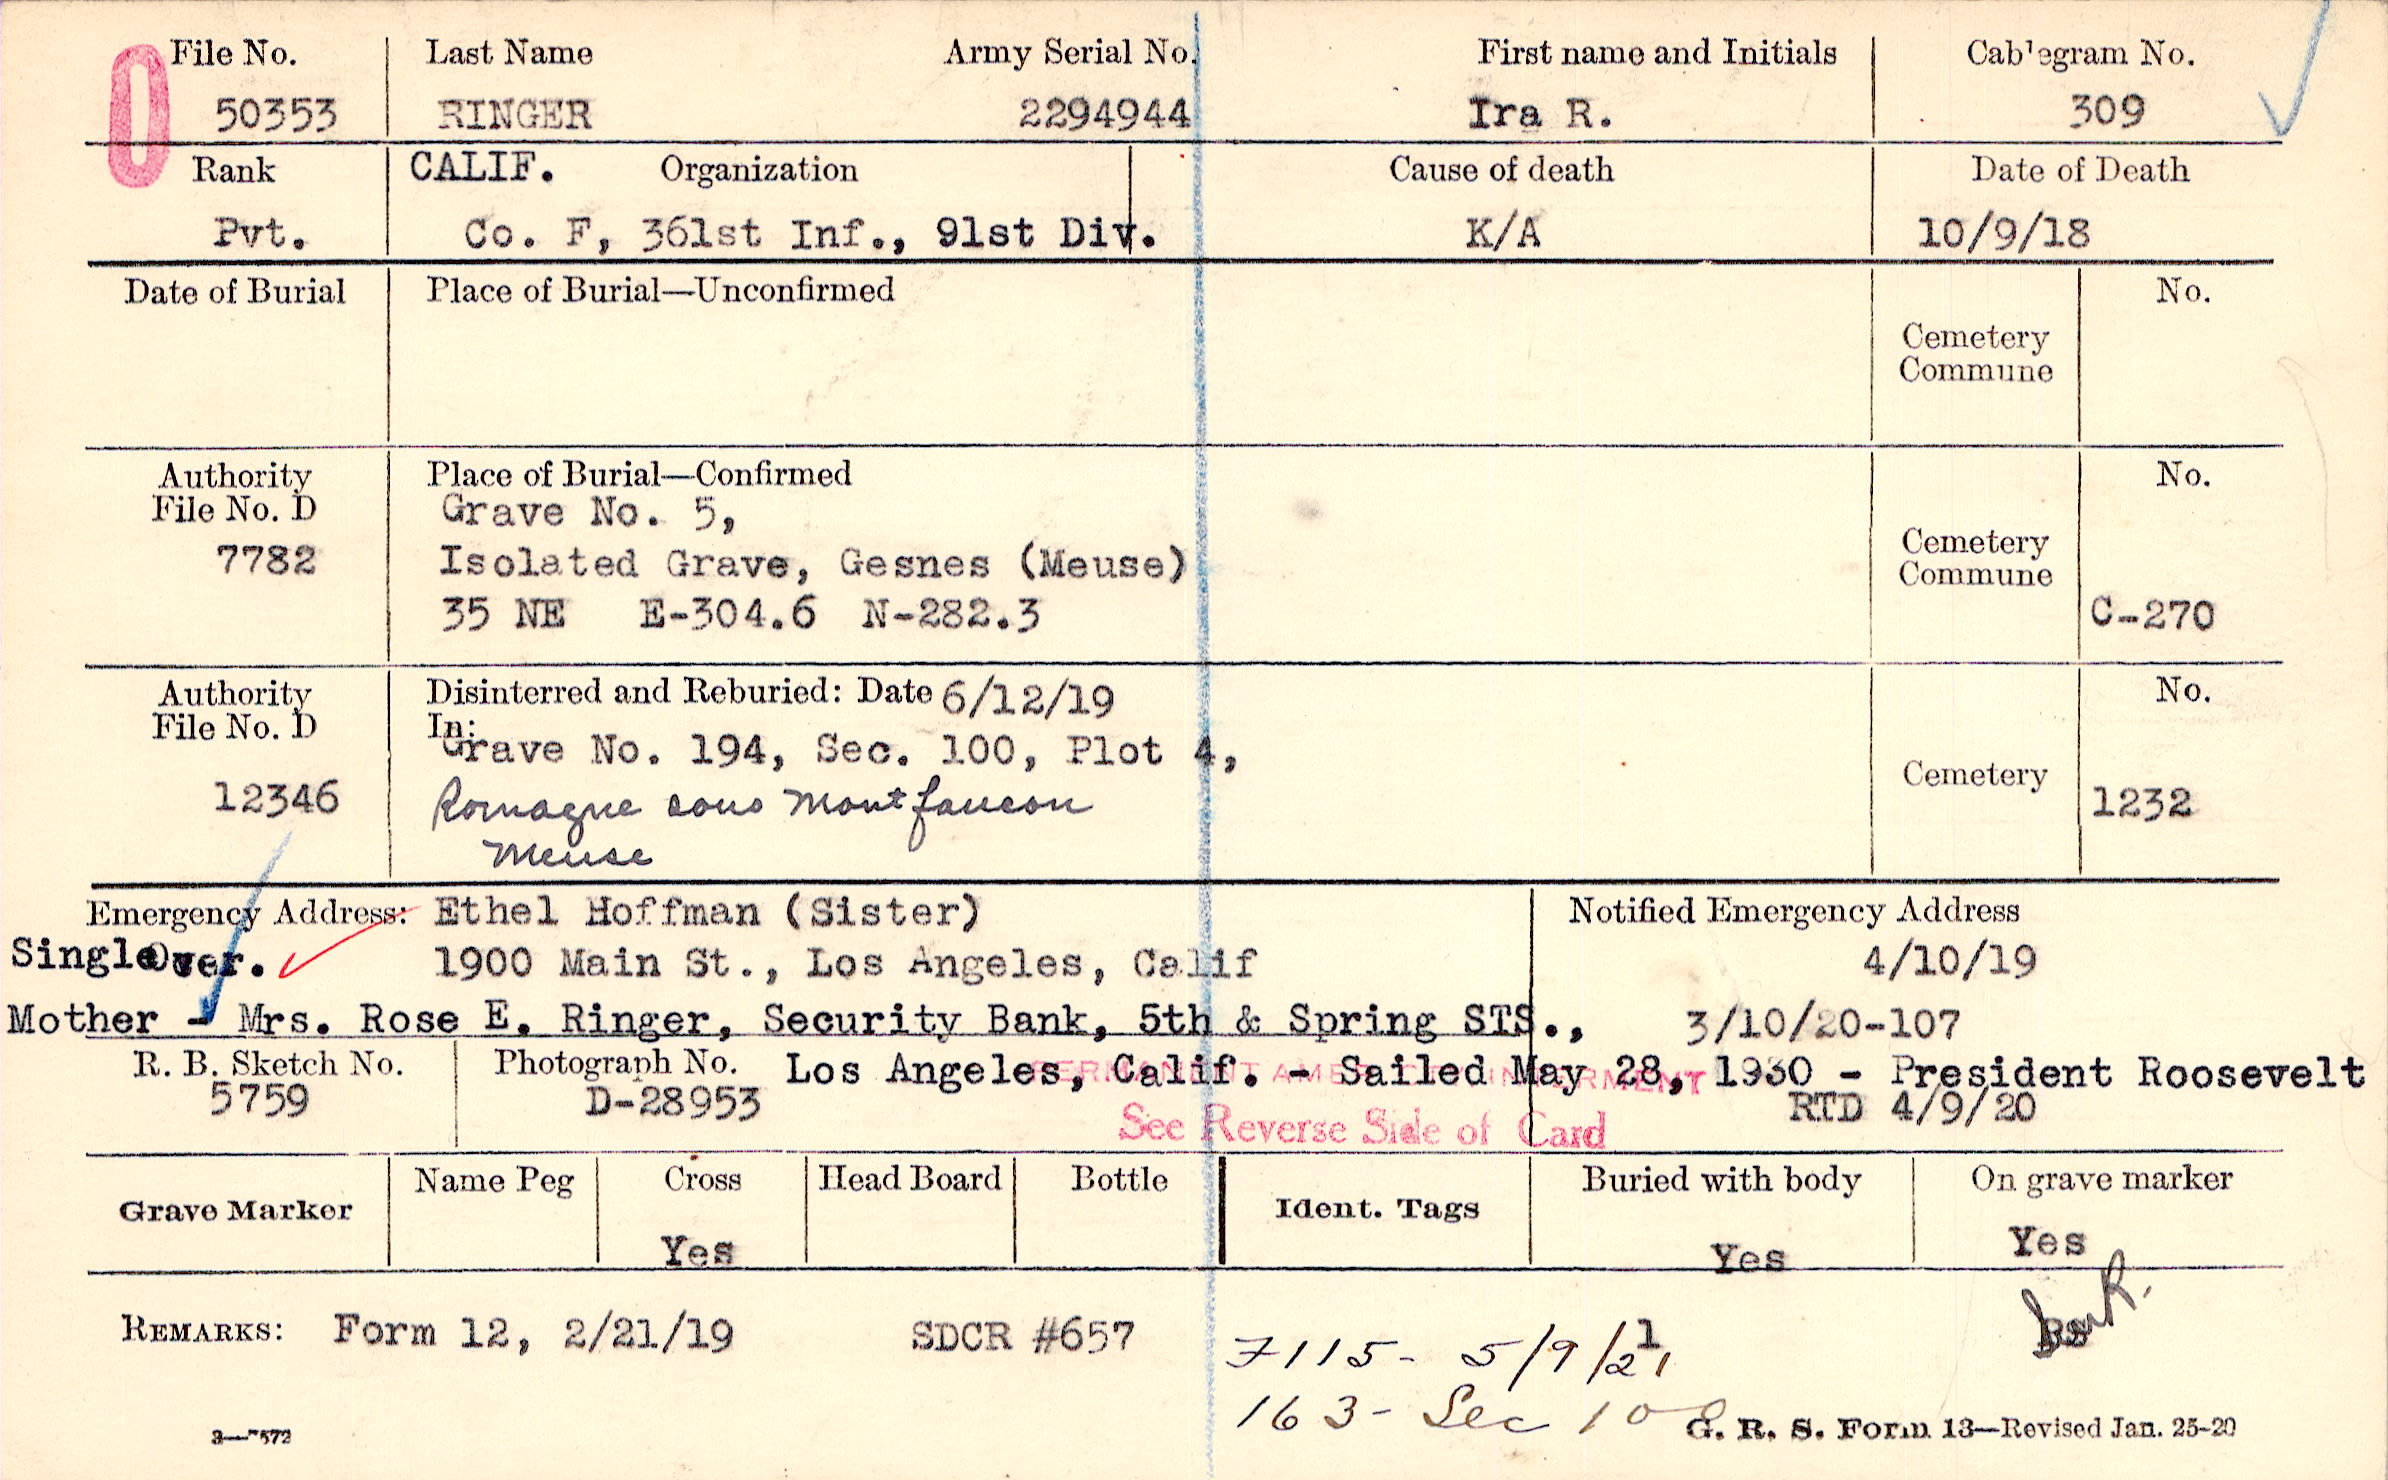 0
File No. Last Name Army Serial No. First name and Initials Cablegram No.
50353 RINGER 2294944 Ira R. 309
Rank CALIF. Organization Cause of death Date of Death
Pvt. Co. F, 361st Inf., 91st Div. K/A 10/9/18
Date of Burial Place of Burial—Unconfirmed No.
Cemetery
Commune
Authority Place of Burial—Confirmed No.
File No. D Grave No. 5,
7782 Isolated Grave, Gesnes (Meuse) Cemetery
Commune
35 NE E-304.6 N-282.3 C-270
Authority Disinterred and Reburied: Date 6/12/19 No.
File No. D In:
Grave No. 194, Sec. 100, Plot 4,
12346 Romagne sous Montfaucon Cemetery 1232
Meuse
Emergency Address: Ethel Hoffman (Sister) Notified Emergency Address
Single Over. 1900 Main St., Los Angeles, Calif 4/10/19
Mother - Mrs. Rose E. Ringer, Security Bank, 5th & Spring STS., 3/10/20-107
R. B. Sketch No. Photograph No. Los Angeles, Calif. - Sailed May 28, 1930 - President Roosevelt
5759 D-28953 RTD 4/9/20
PERMANENT AMERICAN INTERMENT
See Reverse Side of Card
Grave Marker Name Peg Cross Head Board Bottle Ident. Tags Buried with body On grave marker
Yes Yes Yes
REMARKS: Form 12, 2/21/19 SDCR #657 7115- 5/9/21
163- Sec 100
3—7572 G. R. S. Form 13—Revised Jan. 25-20